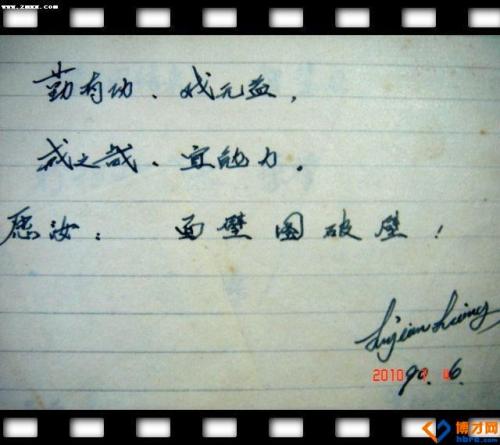 www.2mxx.com
勤有功、戏无益,
戒之哉、宜勉力。
愿汝: 面壁图破壁!
2010
90.6.
博才网
hbrc.com